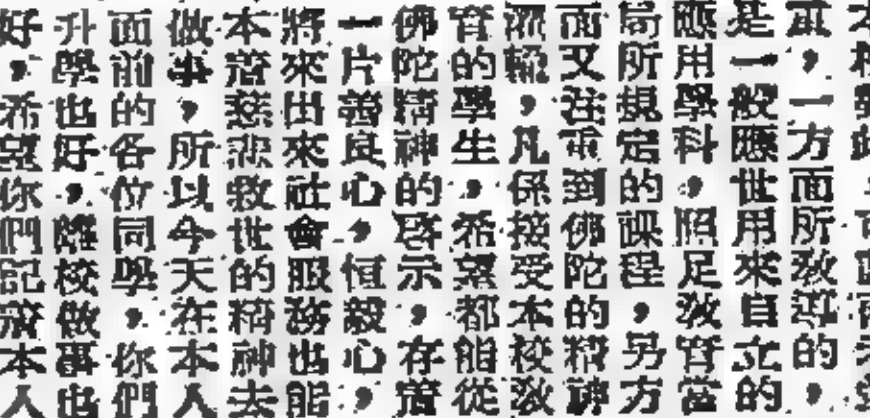 重,一方面所敎導的,
是一般應世用來自立的
應用學科,照足敎育當
局所規定的課程,另方
面又注重到佛陀的精神
流輸,凡係接受本校敎
育的學生,希望都能從
佛陀精神的啓示,存著
一片善良心,恒毅心,
將來出來社會服務也能
本著慈悲救世的精神去
做事,所以今天在本人
面前的各位同學,你們
升學也好,離校做事也
好,希望你們記着本人